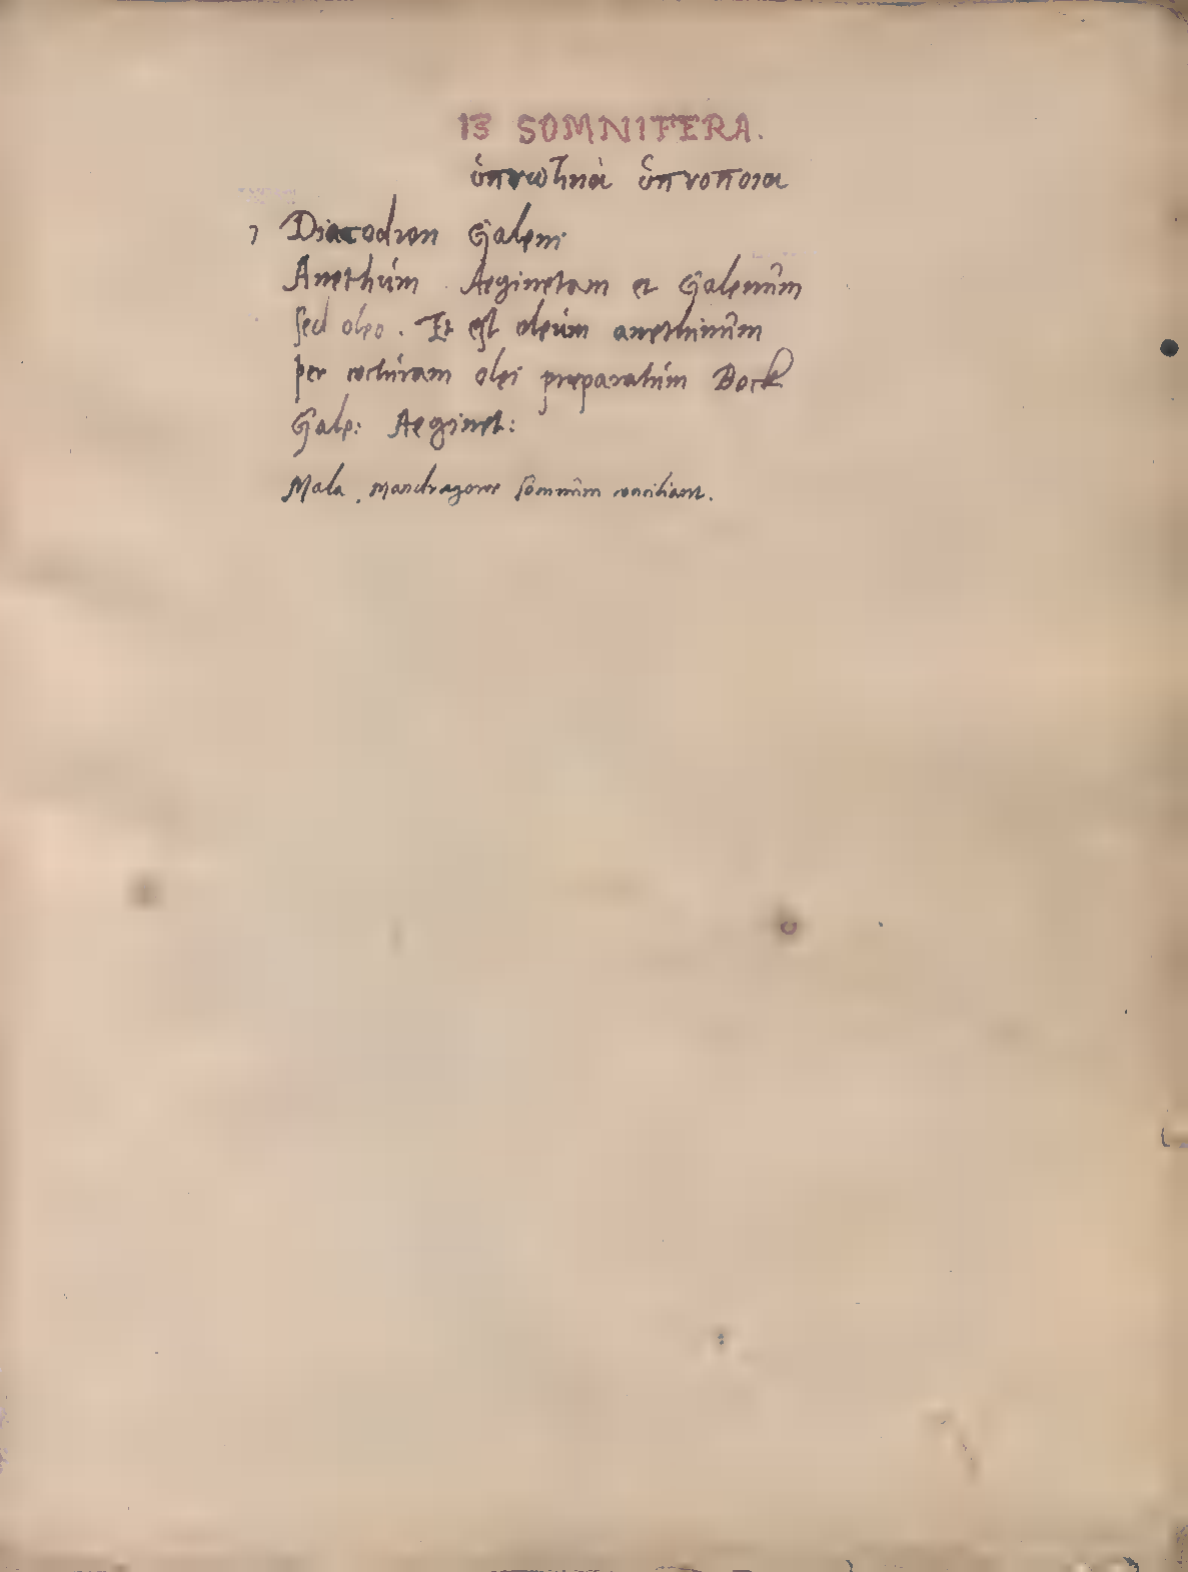 13 SOMNIFERA.
ὑπνωτικὰ ὑπνοποια
Diacodion Galeni
Anethum Aeginetam et Galenum
sed oleo. Et est oleum anethinum
per cocturam olei preparatum Bock
Gale: Aeginet:
Mala mandragorae somnum conciliant.